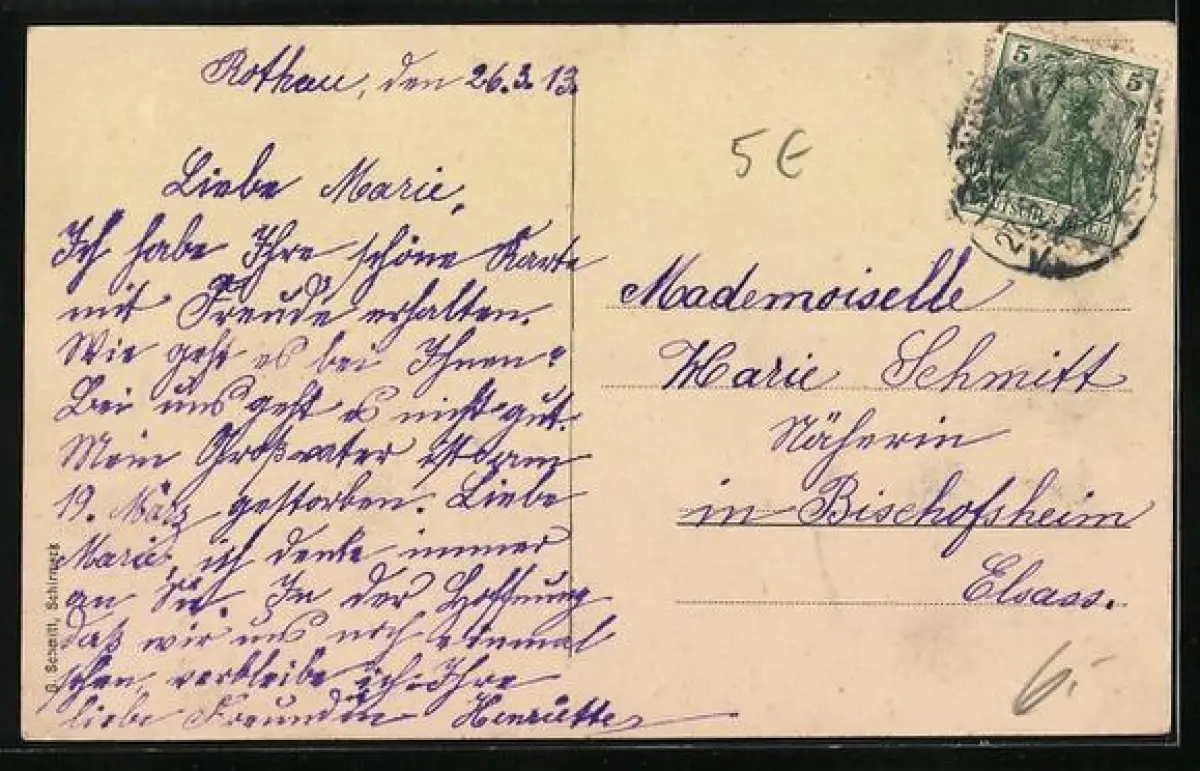 Rothau, den 26.3.13.
Liebe Marie,
Ich habe Ihre schöne Karte
mit Freude erhalten.
Wie geht es bei Ihnen?
Bei uns geht es nicht gut.
Mein Großvater ist am
19. März gestorben. Liebe
Marie, ich denke immer
an Sie. In der Hoffnung
daß wir uns noch einmal
sehen, verbleibe ich Ihre
liebe Freundin Henriette
G. Schmitt, Schirmeck
5 €
5 5
Mademoiselle
Marie Schmitt
Näherin
in Bischofsheim
Elsass.
6.-